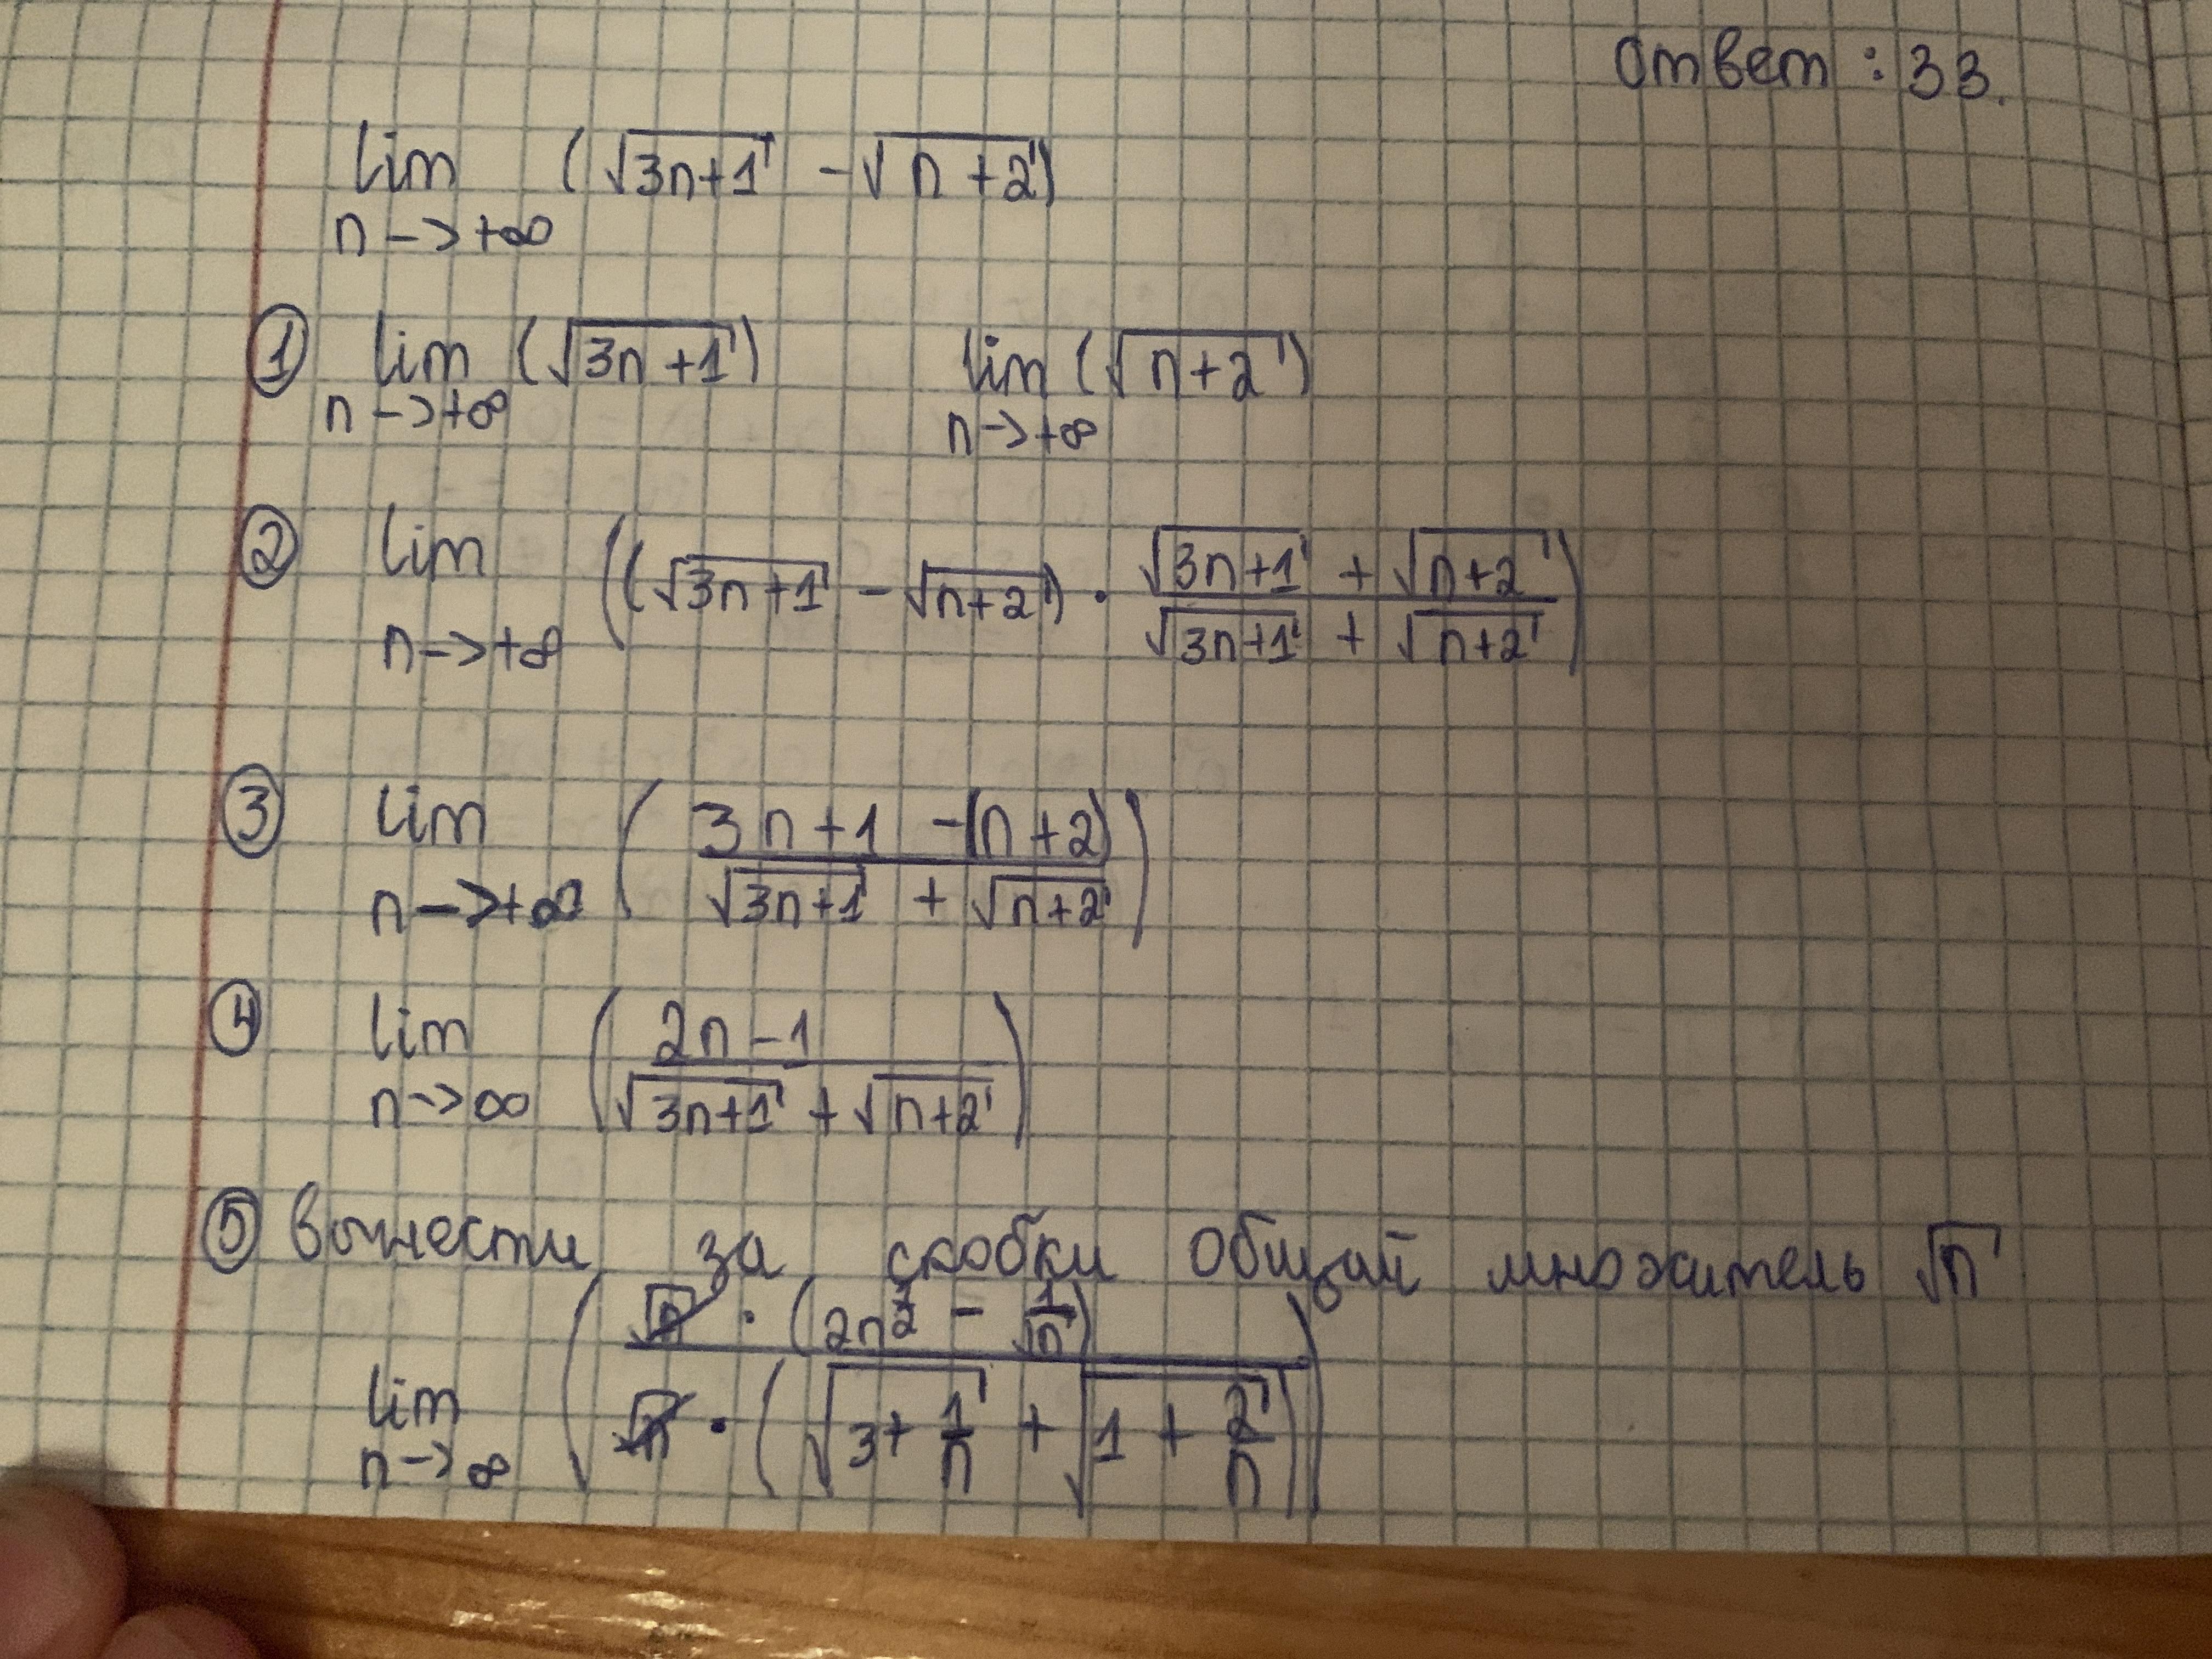 Ответ : 33.
lim (√3n+1 - √n+2)
n->+∞
① lim (√3n+1) lim (√n+2)
n->+∞ n->+∞
② lim ((√3n+1 - √n+2) · (√3n+1 + √n+2)/(√3n+1 + √n+2))
n->+∞
③ lim ((3n+1 -(n+2))/(√3n+1 + √n+2))
n->+∞
④ lim ((2n-1)/(√3n+1 + √n+2))
n->∞
⑤ вынести за скобки общий множитель √n
lim ((√n · (2n^(1/2) - 1/√n))/(√n · (√(3+1/n) + √(1+2/n))))
n->∞